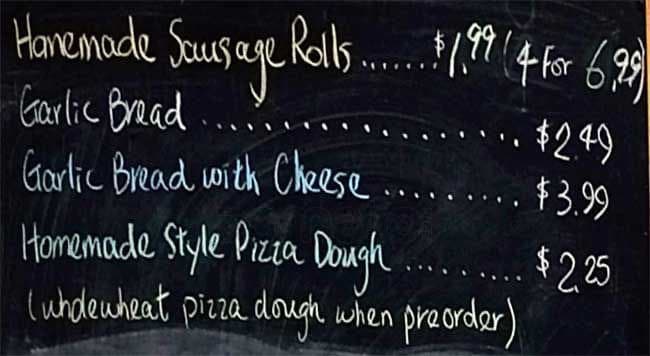 Homemade Sausage Rolls ....... $1.99 (4 for 6.99)
Garlic Bread .................. $2.49
Garlic Bread with Cheese ......... $3.99
Homemade Style Pizza Dough ......... $2.25
(wholewheat pizza dough when preorder)